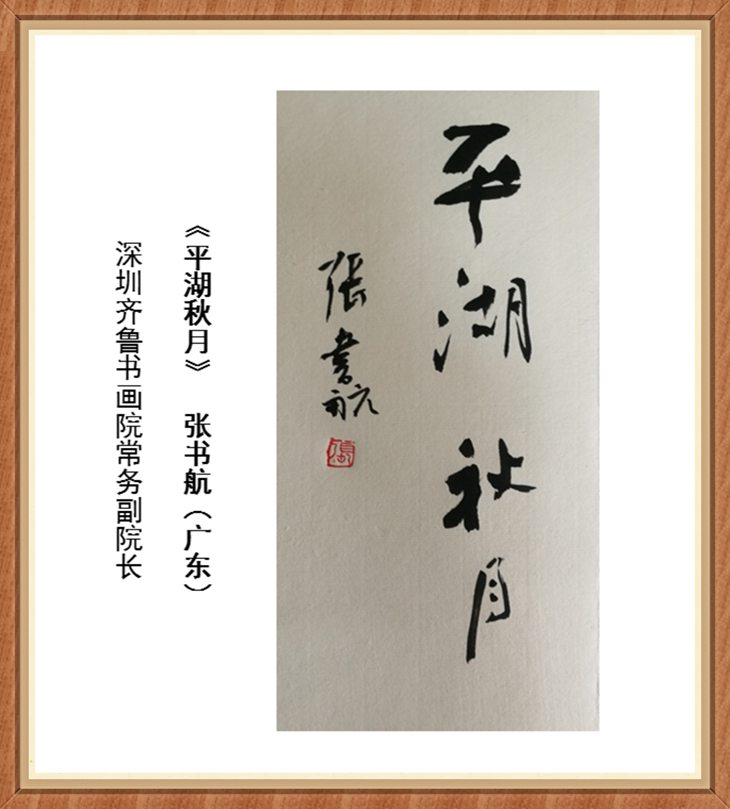 平湖秋月
張書航
《平湖秋月》 张书航（广东）
深圳齐鲁书画院常务副院长